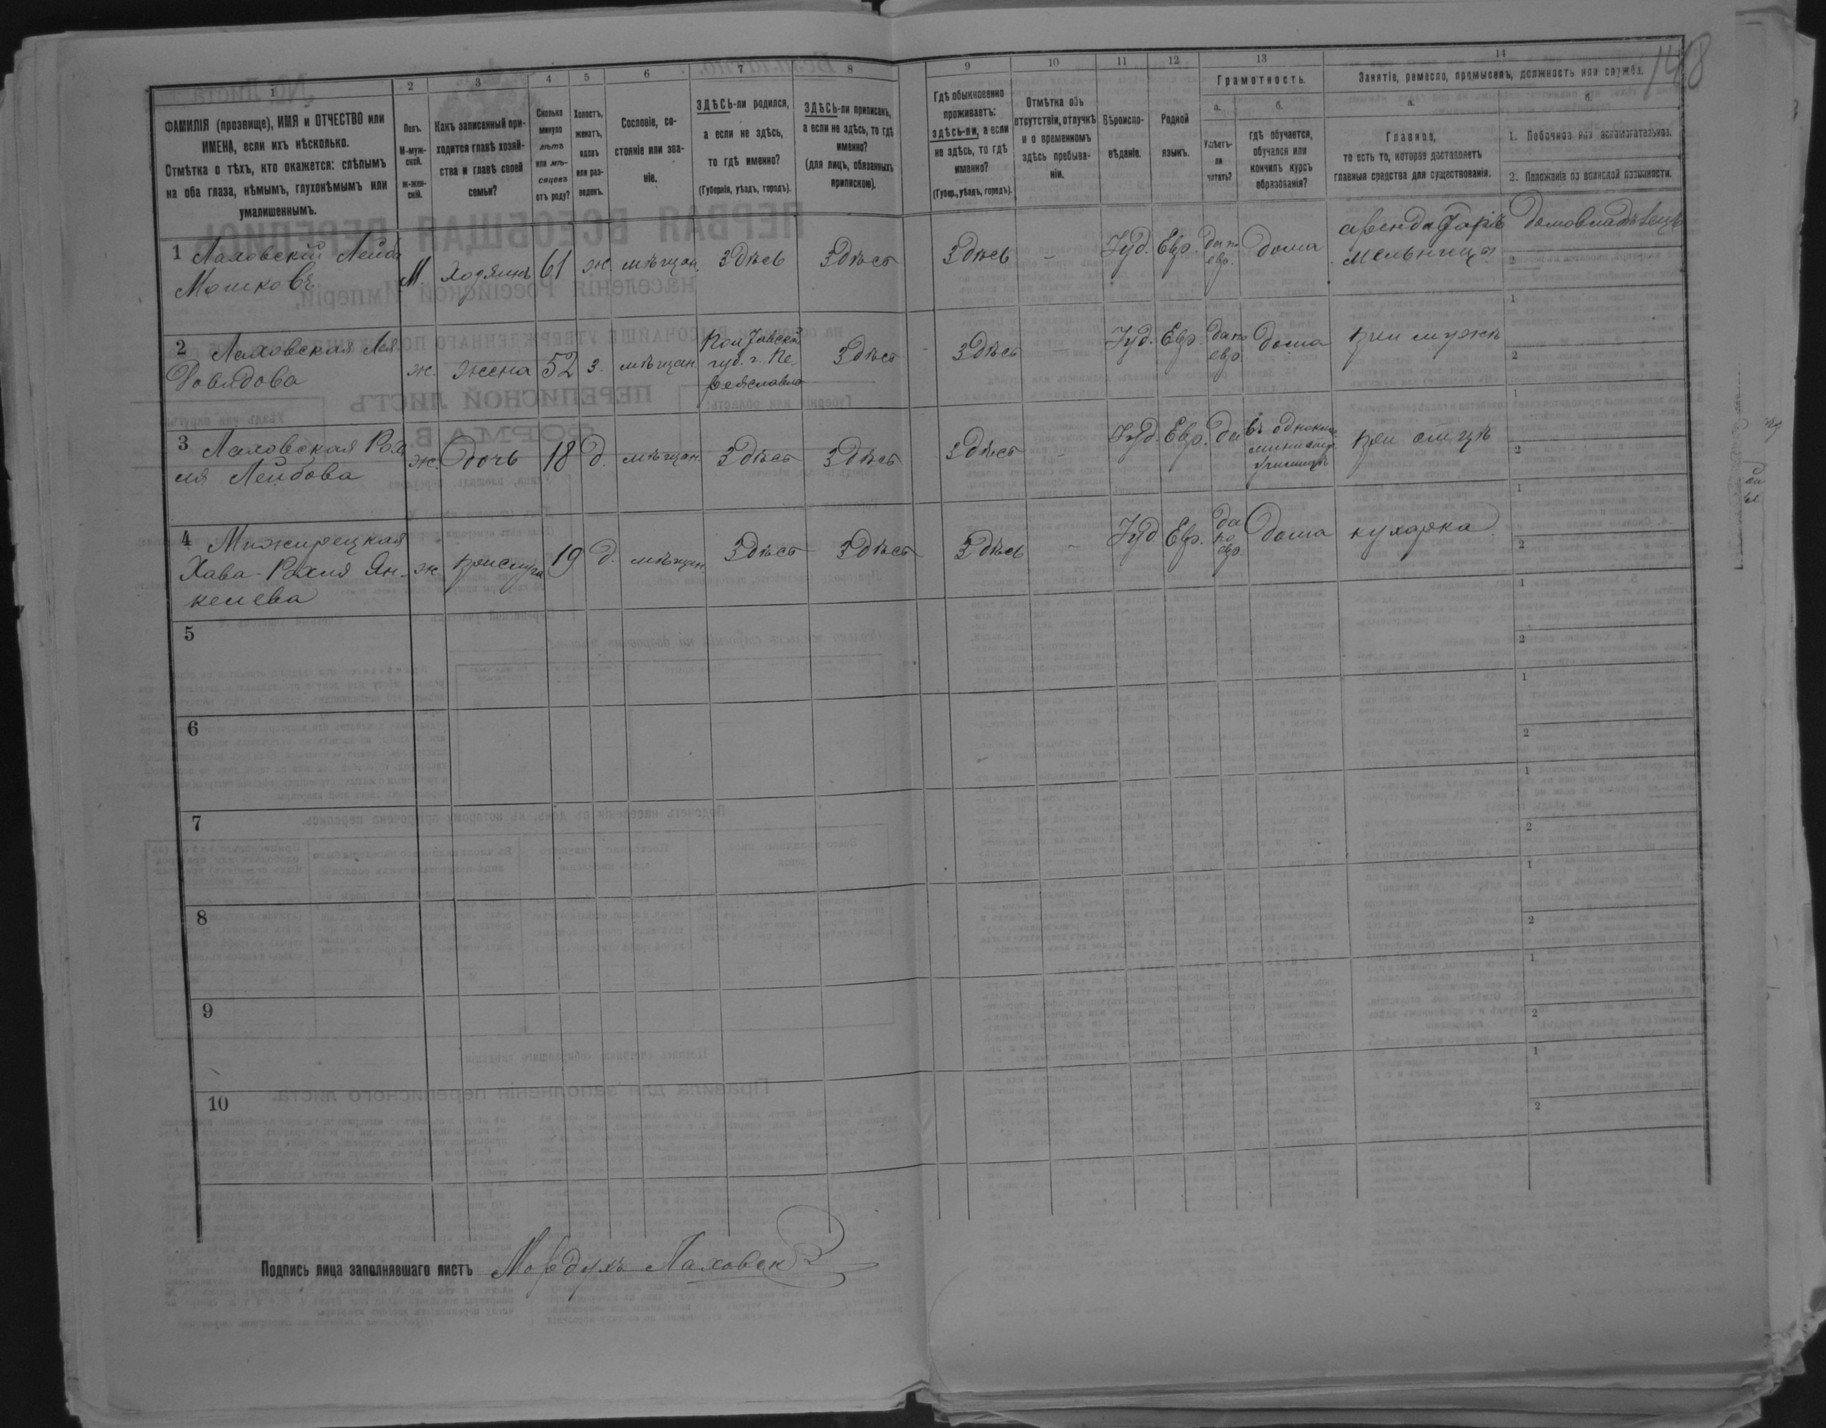 148
1 2 3 4 5 6 7 8 9 10 11 12 13 14
ФАМИЛІЯ (прозвище), ИМЯ и ОТЧЕСТВО или
ИМЕНА, если ихъ нѣсколько.
Отмѣтка о тѣхъ, кто окажется: слѣпымъ
на оба глаза, нѣмымъ, глухонѣмымъ или
умалишеннымъ.
Полъ.
М-муж-
ской.
Ж-жен-
скій.
Какъ записанный при-
ходится главѣ хозяй-
ства и главѣ своей
семьи?
Сколько
минуло
лѣтъ
или мѣ-
сяцевъ
отъ роду?
Холостъ,
женатъ,
вдовъ
или раз-
веденъ.
Сословіе, со-
стояніе или зва-
ніе.
ЗДѢСЬ-ли родился,
а если не здѣсь,
то гдѣ именно?
(Губернія, уѣздъ, городъ).
ЗДѢСЬ-ли приписанъ,
а если не здѣсь, то гдѣ
именно?
(для лицъ, обязанныхъ
припискою).
Гдѣ обыкновенно
проживаетъ:
здѣсь-ли, а если
не здѣсь, то гдѣ
именно?
(Губер., уѣздъ, городъ).
Отмѣтка объ
отсутствіи, отлучкѣ
и о временномъ
здѣсь пребыва-
ніи.
Вѣроиспо-
вѣданіе.
Родной
языкъ.
Грамотность.
а.
Умѣетъ-
ли
читать?
б.
гдѣ обучается,
обучался или
кончилъ курсъ
образованія?
Занятіе, ремесло, промыселъ, должность или служба.
а.
Главное,
то есть то, которое доставляетъ
главныя средства для существованія.
б.
1. Побочное или вспомогательное.
2. Положеніе по воинской повинности.
1 Лаховскій Лейба
Мошковъ
М хозяинъ 61 ж мѣщан. здѣсь здѣсь здѣсь - Іуд. Евр. да по
евр. дома арендаторъ
мельницы домовладѣлецъ
2
2 Лаховская Лея
Довидова
ж. жена 52 з. мѣщан. Полтавска
губ. г. Пе-
реяславль здѣсь здѣсь - Іуд. Евр. да по
евр. дома при мужѣ
1
2
3 Лаховская
Лейбова
ж. дочь 18 д. мѣщан. здѣсь здѣсь здѣсь - Іуд. Евр. да въ однокл.
министер.
училищѣ при отцѣ
1
2
4 Межирецкая
Хава-Рахля Ян-
келева
ж. прислуга 19 д. мѣщан. здѣсь здѣсь здѣсь - Іуд. Евр. да
по
евр. дома кухарка
1
2
5
1
2
6
1
2
7
1
2
8
1
2
9
1
2
10
1
2
Подпись лица заполнявшаго листъ Мордухъ Лаховск